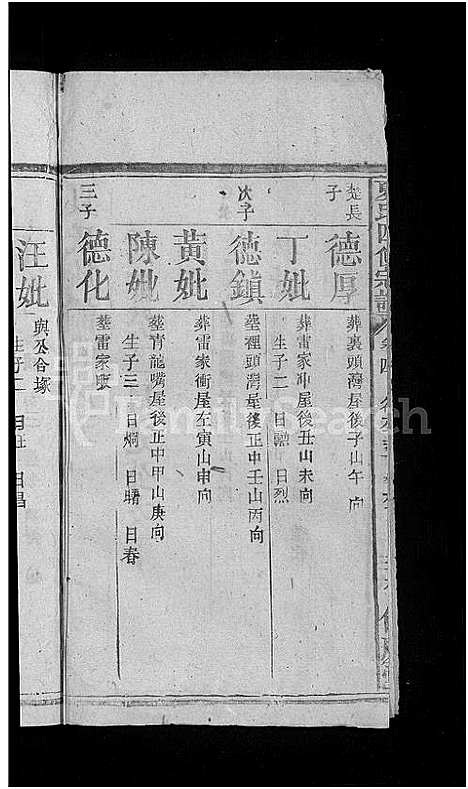 夏氏四修宗譜
楚長子
德厚
葬裏頭灣屋後子山午向
丁妣
葬雷家冲屋後丑山未向
生子二 日勲 日烈
次子
德鎮
塟裡頭灣屋後正中壬山丙向
黃妣
葬雷家衝屋左寅山申向
陳妣
塟青龍嘴屋後正中甲山庚向
生子三 日烱 日曙 日春
三子
德化
塟雷家
汪妣
與公合塚
生子二 日 日昌
FamilySearch